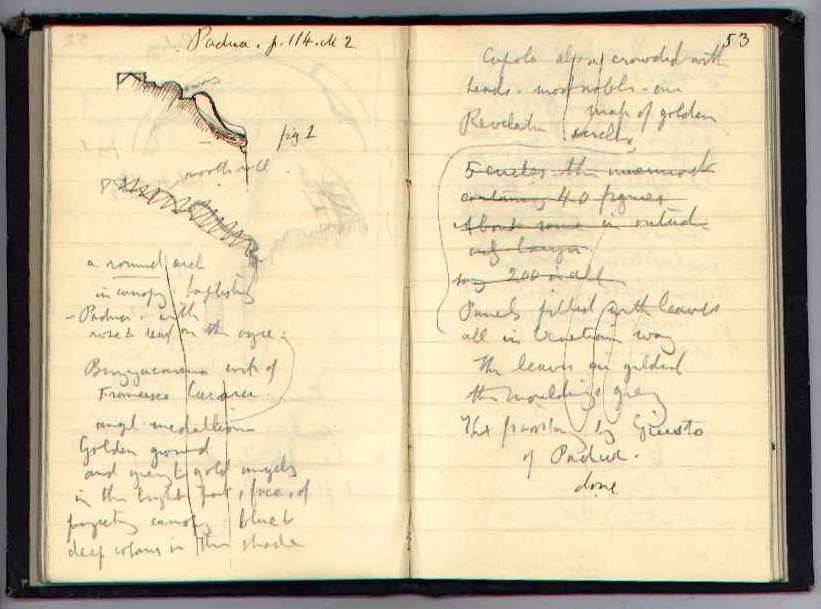 Padua. p. 114. M 2.
fig 2
smooth roll
a round arch
in canopy baptistry
Padua. with
rose & leaf on the ogee:
wife of
Francesco Carrara
angl medallion
Golden ground
and grey & gold angels
in the light part, face of
canopy blue &
deep colours in the shade
53
Cupola also crowded with
heads. most noble. one
map of golden
Revelation circles
5 circles the innermost
containing 40 figures
About same in outside
and larger
say 200 in all
Panels filled with leaves
all in Venetian way
The leaves are gilded
the mouldings grey
The painting by Giusto
of Padua.
done